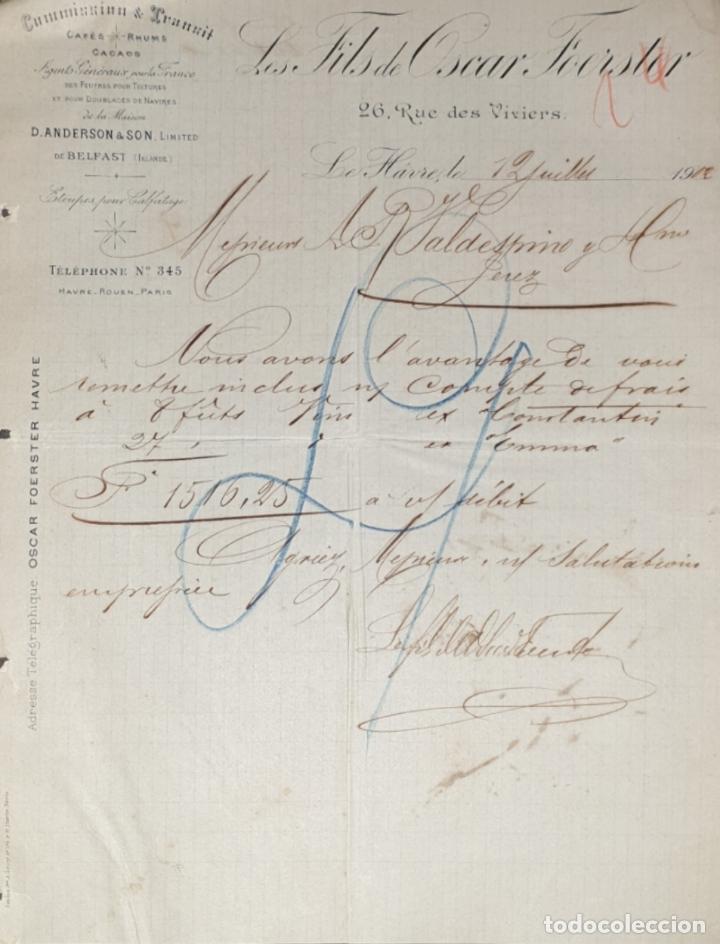 Commission & Transit
CAFÉS RHUMS
CACAOS
Agents Généraux pour la France
DES FEUTRES POUR TOITURES
ET POUR DOUBLAGES DE NAVIRES
de la Maison
D. ANDERSON & SON, LIMITED
DE BELFAST (IRLANDE)
Etoupes pour Calfatage
TÉLÉPHONE Nº 345
HAVRE_ROUEN_PARIS
Les Fils de Oscar Foerster
26, Rue des Viviers.
Le Hâvre, le 12 Juillet 19
Messieurs A. R. Valdespino y Hno
Jerez
Nous avons l'avantage de vous
remettre inclus n/ Compte de frais
à 8 fûts Vins ex "Constantin"
27 " " ex "Emma"
Fs 1516,25 à v/ débit
Agréez, Messieurs, n/ Salutations
empressées
Adresse Télégraphique OSCAR FOERSTER HAVRE
todocoleccion
todocoleccion.net